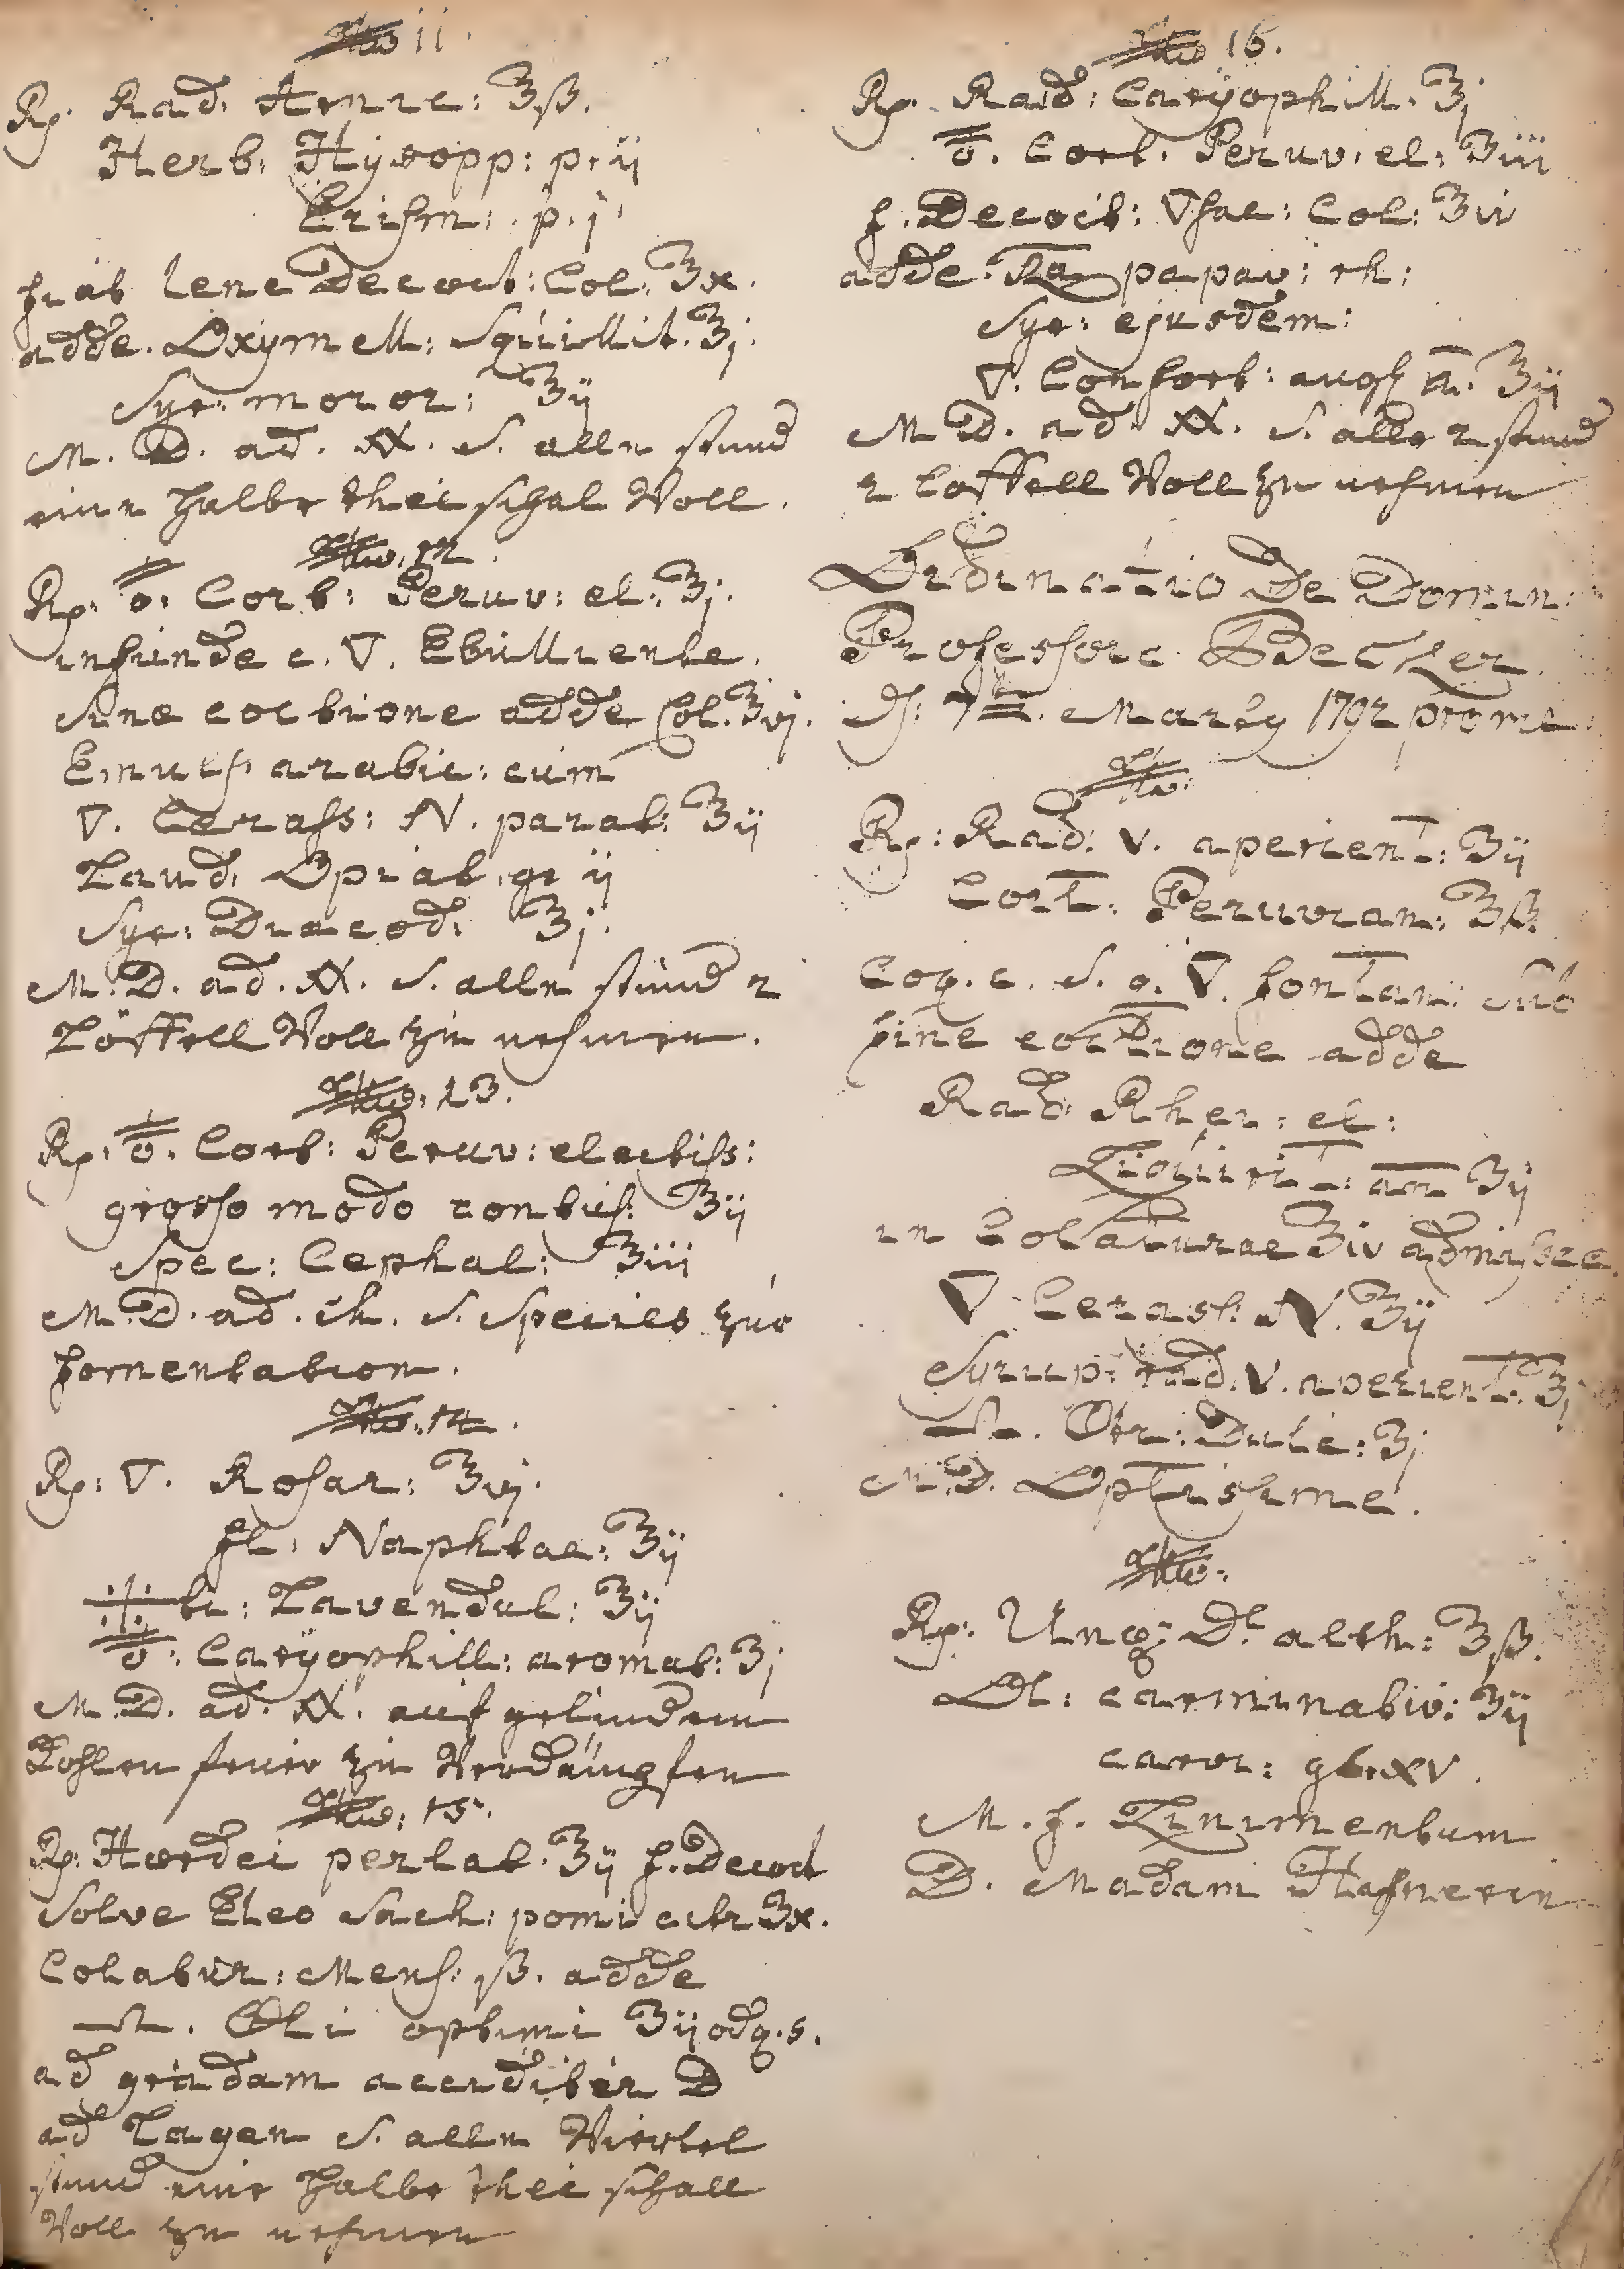 No 11.
Rp. Rad. Irid: ℥ß.
Herb: Hÿssopp: p. ij
Erisim: p. j.
fiat lene Decoct: Col: ℥x.
adde. Oxÿmell: Squillit. ℥j.
Syr: moror: ℥ij
M. D. ad. S. alle stund
eine halbe thee schal Voll.
No. 12.
Rp: Cort: Peruv: el: ℥j.
infunde c. ▽. Ebulliente.
Sine coctione adde Col. ℥vj.
Emuls: arabic: cum
▽. Cerass: N. parat: ℥ij
Laud. Opiat. gr ij
Syr: Diacod: ℥j.
M. D. ad. S. alle stund 2
Löffell Voll zu nehmen.
No. 13.
Rp. Cort: Peruv: electiss:
grosso modo contus: ℥ij
Spec: Cephal: ℥iii
M. D. ad. ch. S. Species zur
fomentation.
No. 14.
Rp: ▽. Rosar: ℥vj.
Naphtae: ℥ij
Lavendul: ℥ij
Carÿophill: aromat: ℥j
M. D. ad. auf gelindem
Kohlen feuer zu Verdämpfen
No: 15.
Rp: Hordei perlat. ℥ij f. Decoct
Solve Eleo Sach: pomi citr ℥x.
Colatur: Mens: ß. adde
optimi ℥ij od q. s.
ad gradam acerditer D
ad Lagen S. alle Viertel
stund eine halbe thee schall
Voll zu nehmen
No 16.
Rp. Rad: Carÿophill. ℥j
Cort. Peruv: el: ℥iii
f. Decoct: ▽ Col: ℥iv
adde. papav: rh:
Syr: ejusdem:
▽. Confort: ā. ℥ij
M D. ad. S. alle 2 stund
2 Löffell Voll zu nehmen
Ordinatio De Domin:
Professore Becker
d: 7. Martÿ 1792 pro me.
No:
Rp: Rad: V. aperient: ℥ij
Cort: Peruvian: ℥ß
Coq. c. s. q. ▽. fontan: sub
fine coctione adde
Rad: Rhei: el:
Liquirit: ana ℥ij
in Colaturae ℥iv admisce.
▽ Cerass: N. ℥ij
Syrup: rad. V. aperient. ℥j
Dulc: ℥j
M. D. Optissime.
No:
Rp: Ung: Dt alth: ℥ß.
Ol: carminativ: ℥ij
carvi: gtt xv.
M. f. Linimentum
D. Madam Hafnerin